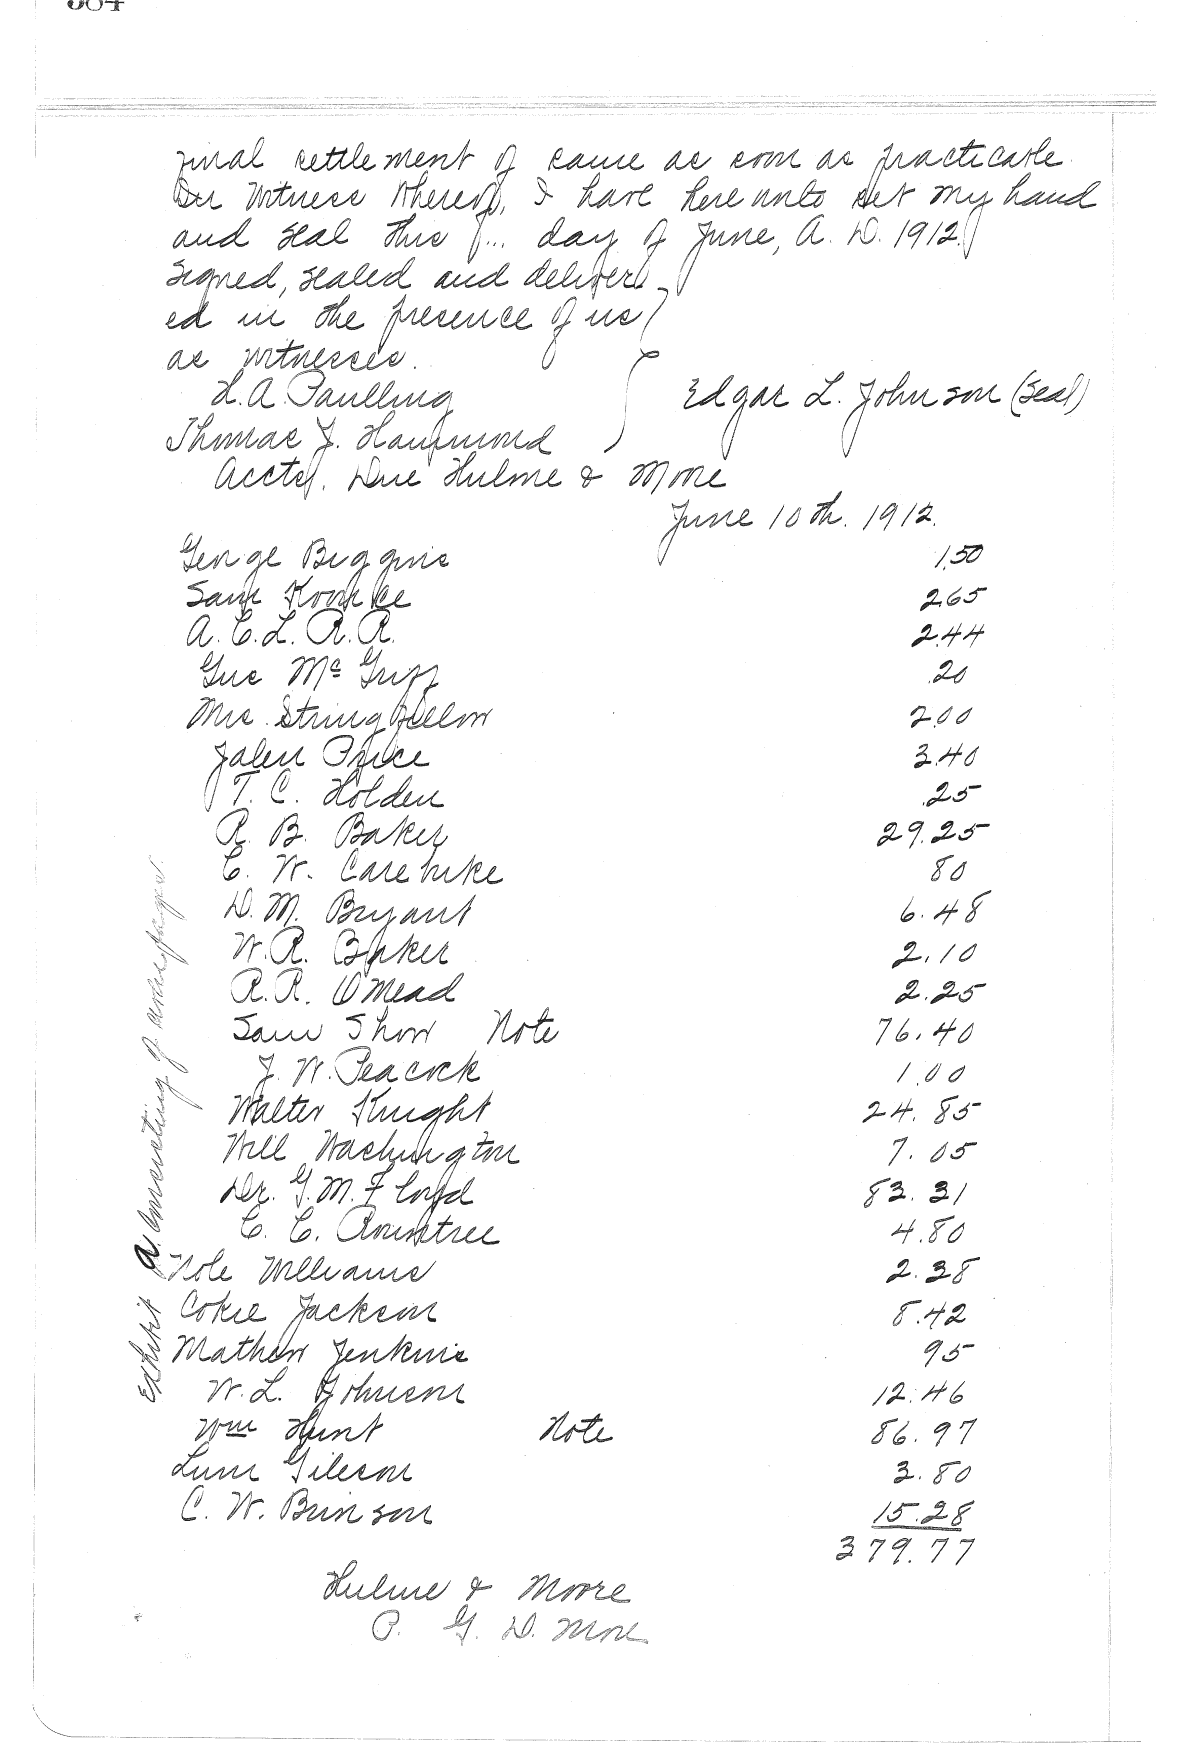 final settlement of same as soon as practicable
In Witness Whereof, I have here unto set my hand
and seal this ... day of June, A. D. 1912.
Signed, sealed and deliver-
ed in the presence of us
as witnesses.
H. A. Paulling
Edgar L. Johnson (Seal)
Thomas J. Hammond
Accts. Due Hulme & Moore
June 10th. 1912.
George Biggins 1.50
Sam 2.65
A. C. L. R. R. 2.44
Gus McGriff .20
Mrs. Stringfellow 2.00
Price 3.40
T. C. Holden .25
R. B. Baker 29.25
C. W. 80
D. M. Bryant 6.48
W. R. Baker 2.10
R. R. O Mead 2.25
Sam Show Note 76.40
J. W. Peacock 1.00
Walter Knight 24.85
Will Washington 7.05
Dr. G. M. Floyd 83.31
C. C. Rountree 4.80
Nole Williams 2.38
Cokie Jackson 8.42
Mathew Jenkins 95
W. L. Johnson 12.46
Wm Hunt Note 86.97
Lum Gibson 3.80
C. W. Brinson 15.28
379.77
Hulme & Moore
P. G. D. Moore
Exhibit a. Consisting of pages